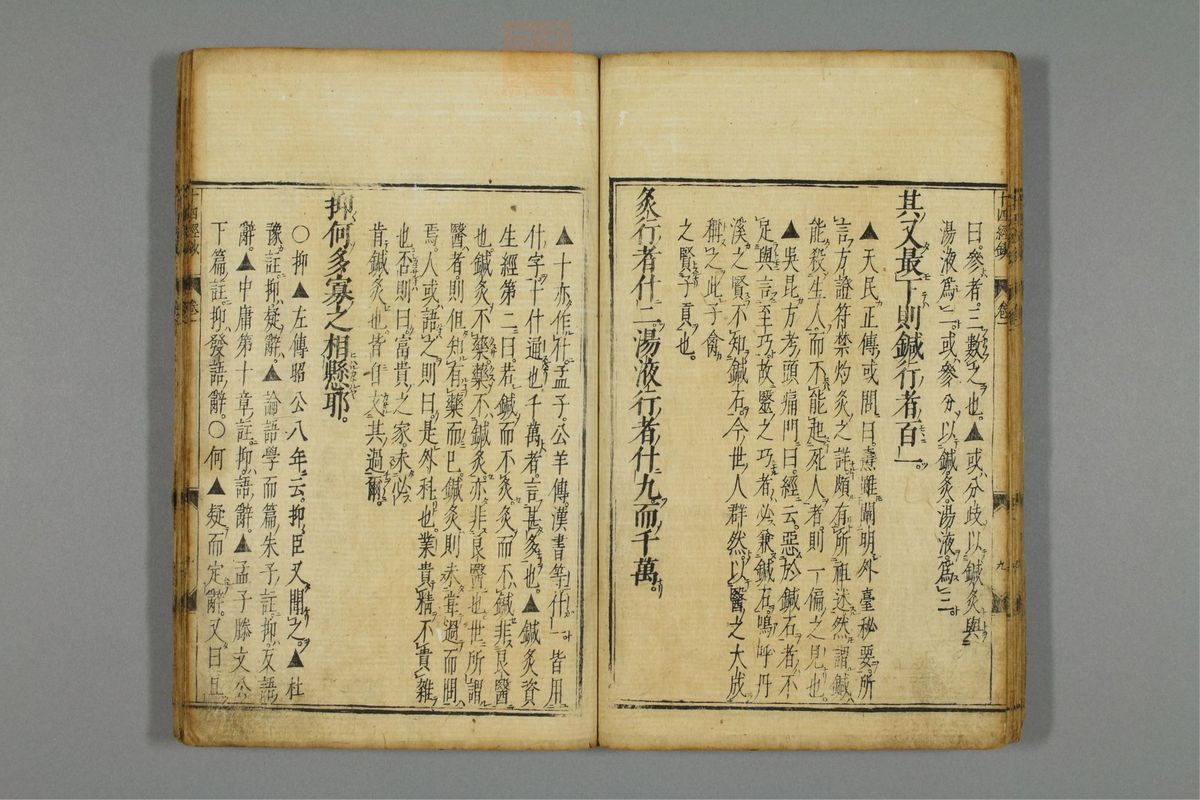 曰。參者。三數之也。▲或分歧。以鍼灸與
湯液爲二。或參分。以鍼灸。湯液。爲三。
其又最下則鍼行者百一。
▲天民正傳或問曰。燾雖闡明外臺秘要。所
言方證符禁灼灸之詳。頗有所祖述。然謂鍼
能殺生人。而不能起死人者。則一偏之見也。
▲吳昆方考頭痛門曰。經云。惡於鍼石者。不
足與言至巧。故醫之巧者。必兼鍼石。嗚呼丹
溪之賢不知鍼石。今世人群然以醫之大成
稱之。此子禽
之賢子貢也。
灸行者什二。湯液行者什九而千萬。
▲十亦作什。孟子。公羊傳漢書等。皆用
什字。十什通也。千萬者。言甚多也。▲鍼灸資
生經第二曰。若鍼而不灸。灸而不鍼。非良醫
也。鍼灸不藥。藥不鍼灸。亦非良醫也。世所謂
醫者。則但知有藥而已。鍼灸則未嘗過而問
焉。人或語之。則曰。是外科也。業貴精不貴雜
也。否則曰。富貴之家。未必
肯鍼灸也。皆自文其過爾。
抑何多寡之相懸耶。
〇抑▲左傳昭公八年云。抑臣又聞之。▲杜
豫註抑疑辭。▲論語學而篇朱子註。抑反語
辭。▲中庸第十章註。抑語辭。▲孟子滕文公
下篇註。抑發語辭。〇何▲疑而定辭。又曰且
十四經鈔
卷一
九